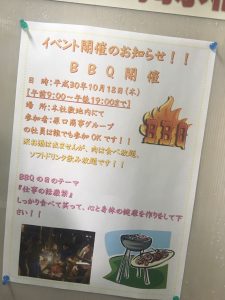 イベント開催のお知らせ!!
BBQ開催
日 時:平成30年10月18日(木)
【午前9:00~午後19:00まで】
場 所:本社敷地内にて
参加者:原口商事グループ
の社員は誰でも参加OKです!!
肉は食べ放題、
ソフトドリンク飲み放題です!!
BBQの日のテーマ
しっかり食べて笑って、心と身体の健康を作りをして下
さい!!
BBQ